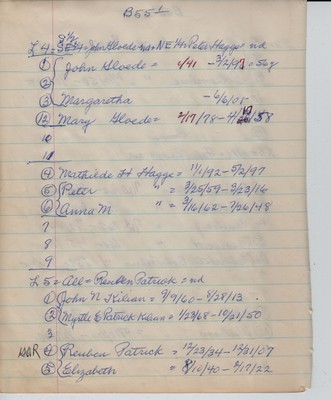 B 55 1
S 1/2
L 4 = SE 1/4 = John Gloede = nd = NE 1/4 = Peter Hagge = nd
① John Gloede = - 3/2/93 = 56 y
②
③ Margaretha - 6/6/05
⑫ Mary Gloede = 2/17/78 - 58
10
11
④ Mathilde H Hagge = 11/1/92 - 5/2/97
⑤ Peter " = 3/25/59 - 5/23/16
⑥ Anna M " = 3/16/62 - 7/26/48
7
8
9
L 5 = All = Reuben Patrick = nd
① John N Kilian = 9/9/60 - 5/28/13
② Myrtle E Patrick Kilian = 1/23/68 - 10/21/50
3
WWR ④ Reuben Patrick = 12/23/34 - 12/31/07
⑤ Elizabeth = 8/10/40 - 2/15/22